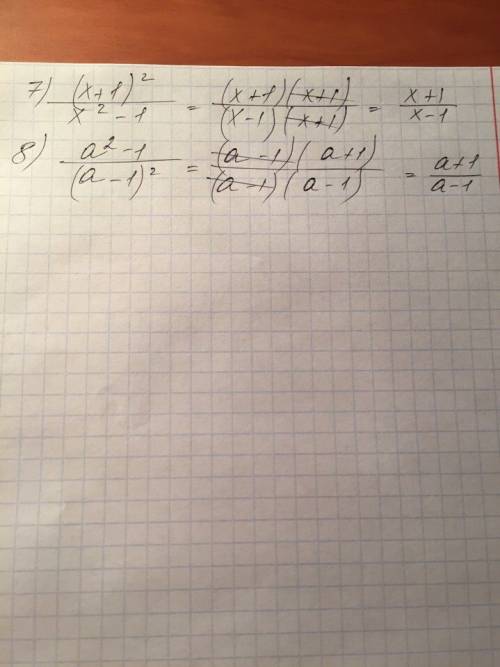 7) (x+1)² / x² - 1 = (x+1)(x+1) / (x-1)(x+1) = x+1 / x-1
8) a² - 1 / (a - 1)² = (a - 1)(a+1) / (a - 1)(a - 1) = a+1 / a-1